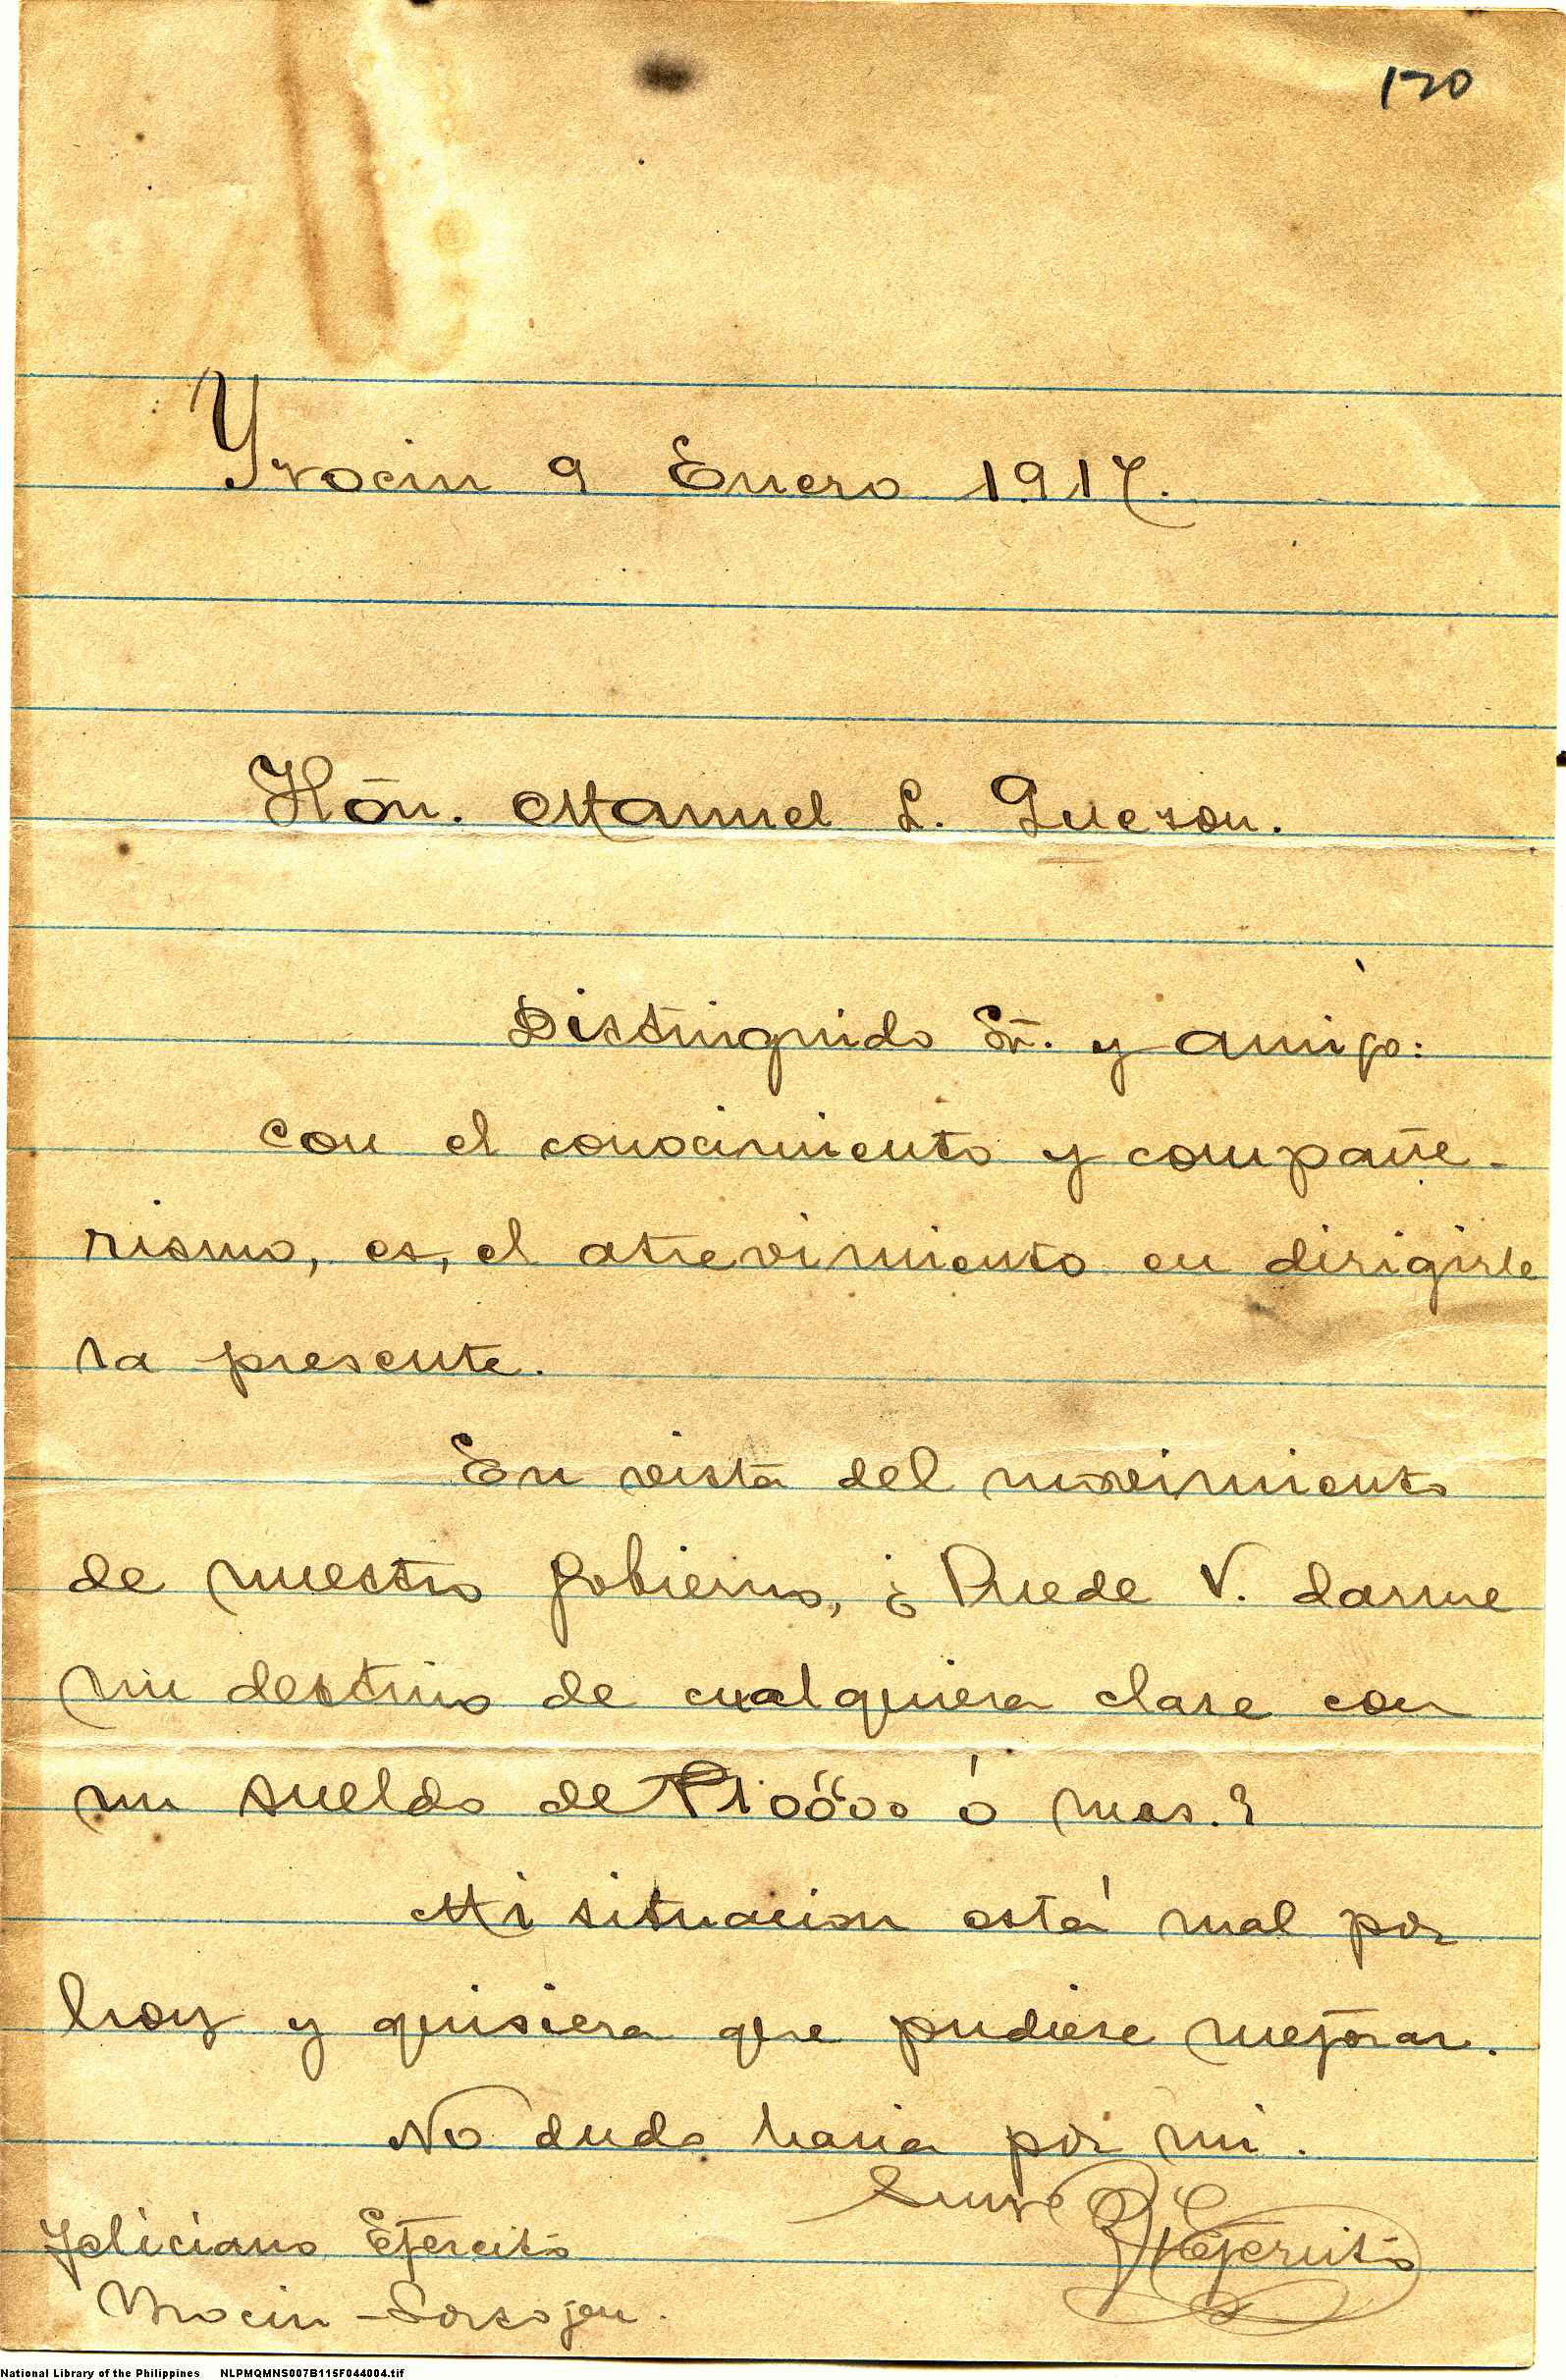 120
Yrocin 9 Enero 1917.
Hon. Manuel L. Quezon.
Distinguido Sr. y amigo:
con el conocimiento y compañe-
rismo, es, el atrevimiento en dirigirle
la presente.
En vista del movimiento
de nuestro gobierno, ¿Puede V. darme
un destino de cualquiera clase con
un sueldo de ₱100 00 ó mas.?
Mi situacion está mal por
hoy y quisiera que pudiese mejorar.
No dudo haria por mi.
Suyo
Ejercito
Feliciano Ejercito
Yrocin - Sorsogon.
National Library of the Philippines NLPMQMNS007B115F044004.tif